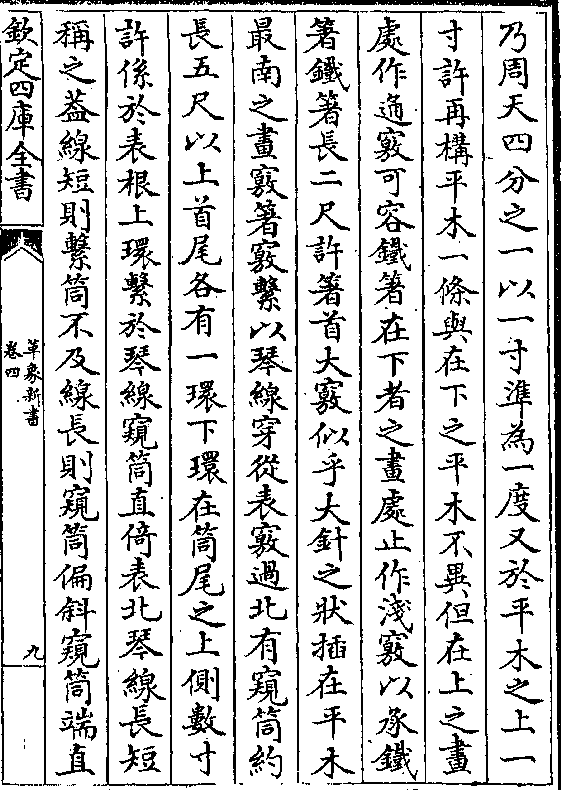 乃周天四分之一以一寸準為一度又於平木之上一
寸許再構平木一條與在下之平木不異但在上之畫
處作通竅可容鐵箸在下者之畫處止作淺竅以承鐵
箸鐵箸長二尺許箸首大竅似乎大針之狀插在平木
最南之畫竅箸竅繫以琴線穿從表竅過北有窺筒約
長五尺以上首尾各有一環下環在筒尾之上側數寸
許係於表根上環繫於琴線窺筒直倚表北琴線長短
稱之葢線短則繫筒不及線長則窺筒偏斜窺筒端直
欽定四庫全書
革象新書
卷四
九